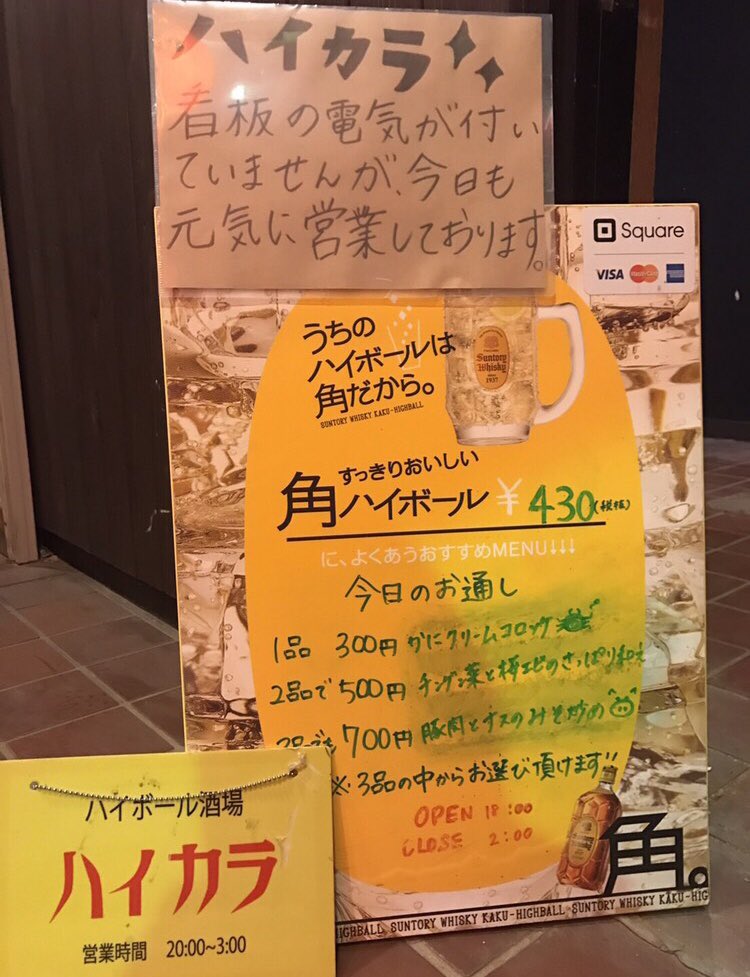 ハイカラ
看板の電気が付い
ていませんが、今日も
元気に営業しております。
Square
VISA MasterCard
うちの
ハイボールは
角だから。
SUNTORY WHISKY KAKU-HIGHBALL
Suntory
Whisky
1937
すっきりおいしい
角ハイボール ¥430(税抜)
に、よくあうおすすめMENU↓↓↓
今日のお通し
1品 300円 かにクリームコロッケ
2品で 500円 チンゲン菜と桜エビのさっぱり和え
3品でも 700円 豚肉とナスのみそ炒め
※3品の中からお選び頂けます!!
OPEN 18:00
CLOSE 2:00
角。
HIGHBALL SUNTORY WHISKY KAKU-HIGHBALL SUNTORY WHISKY KAKU-HIG
ハイボール酒場
ハイカラ
営業時間 20:00~3:00